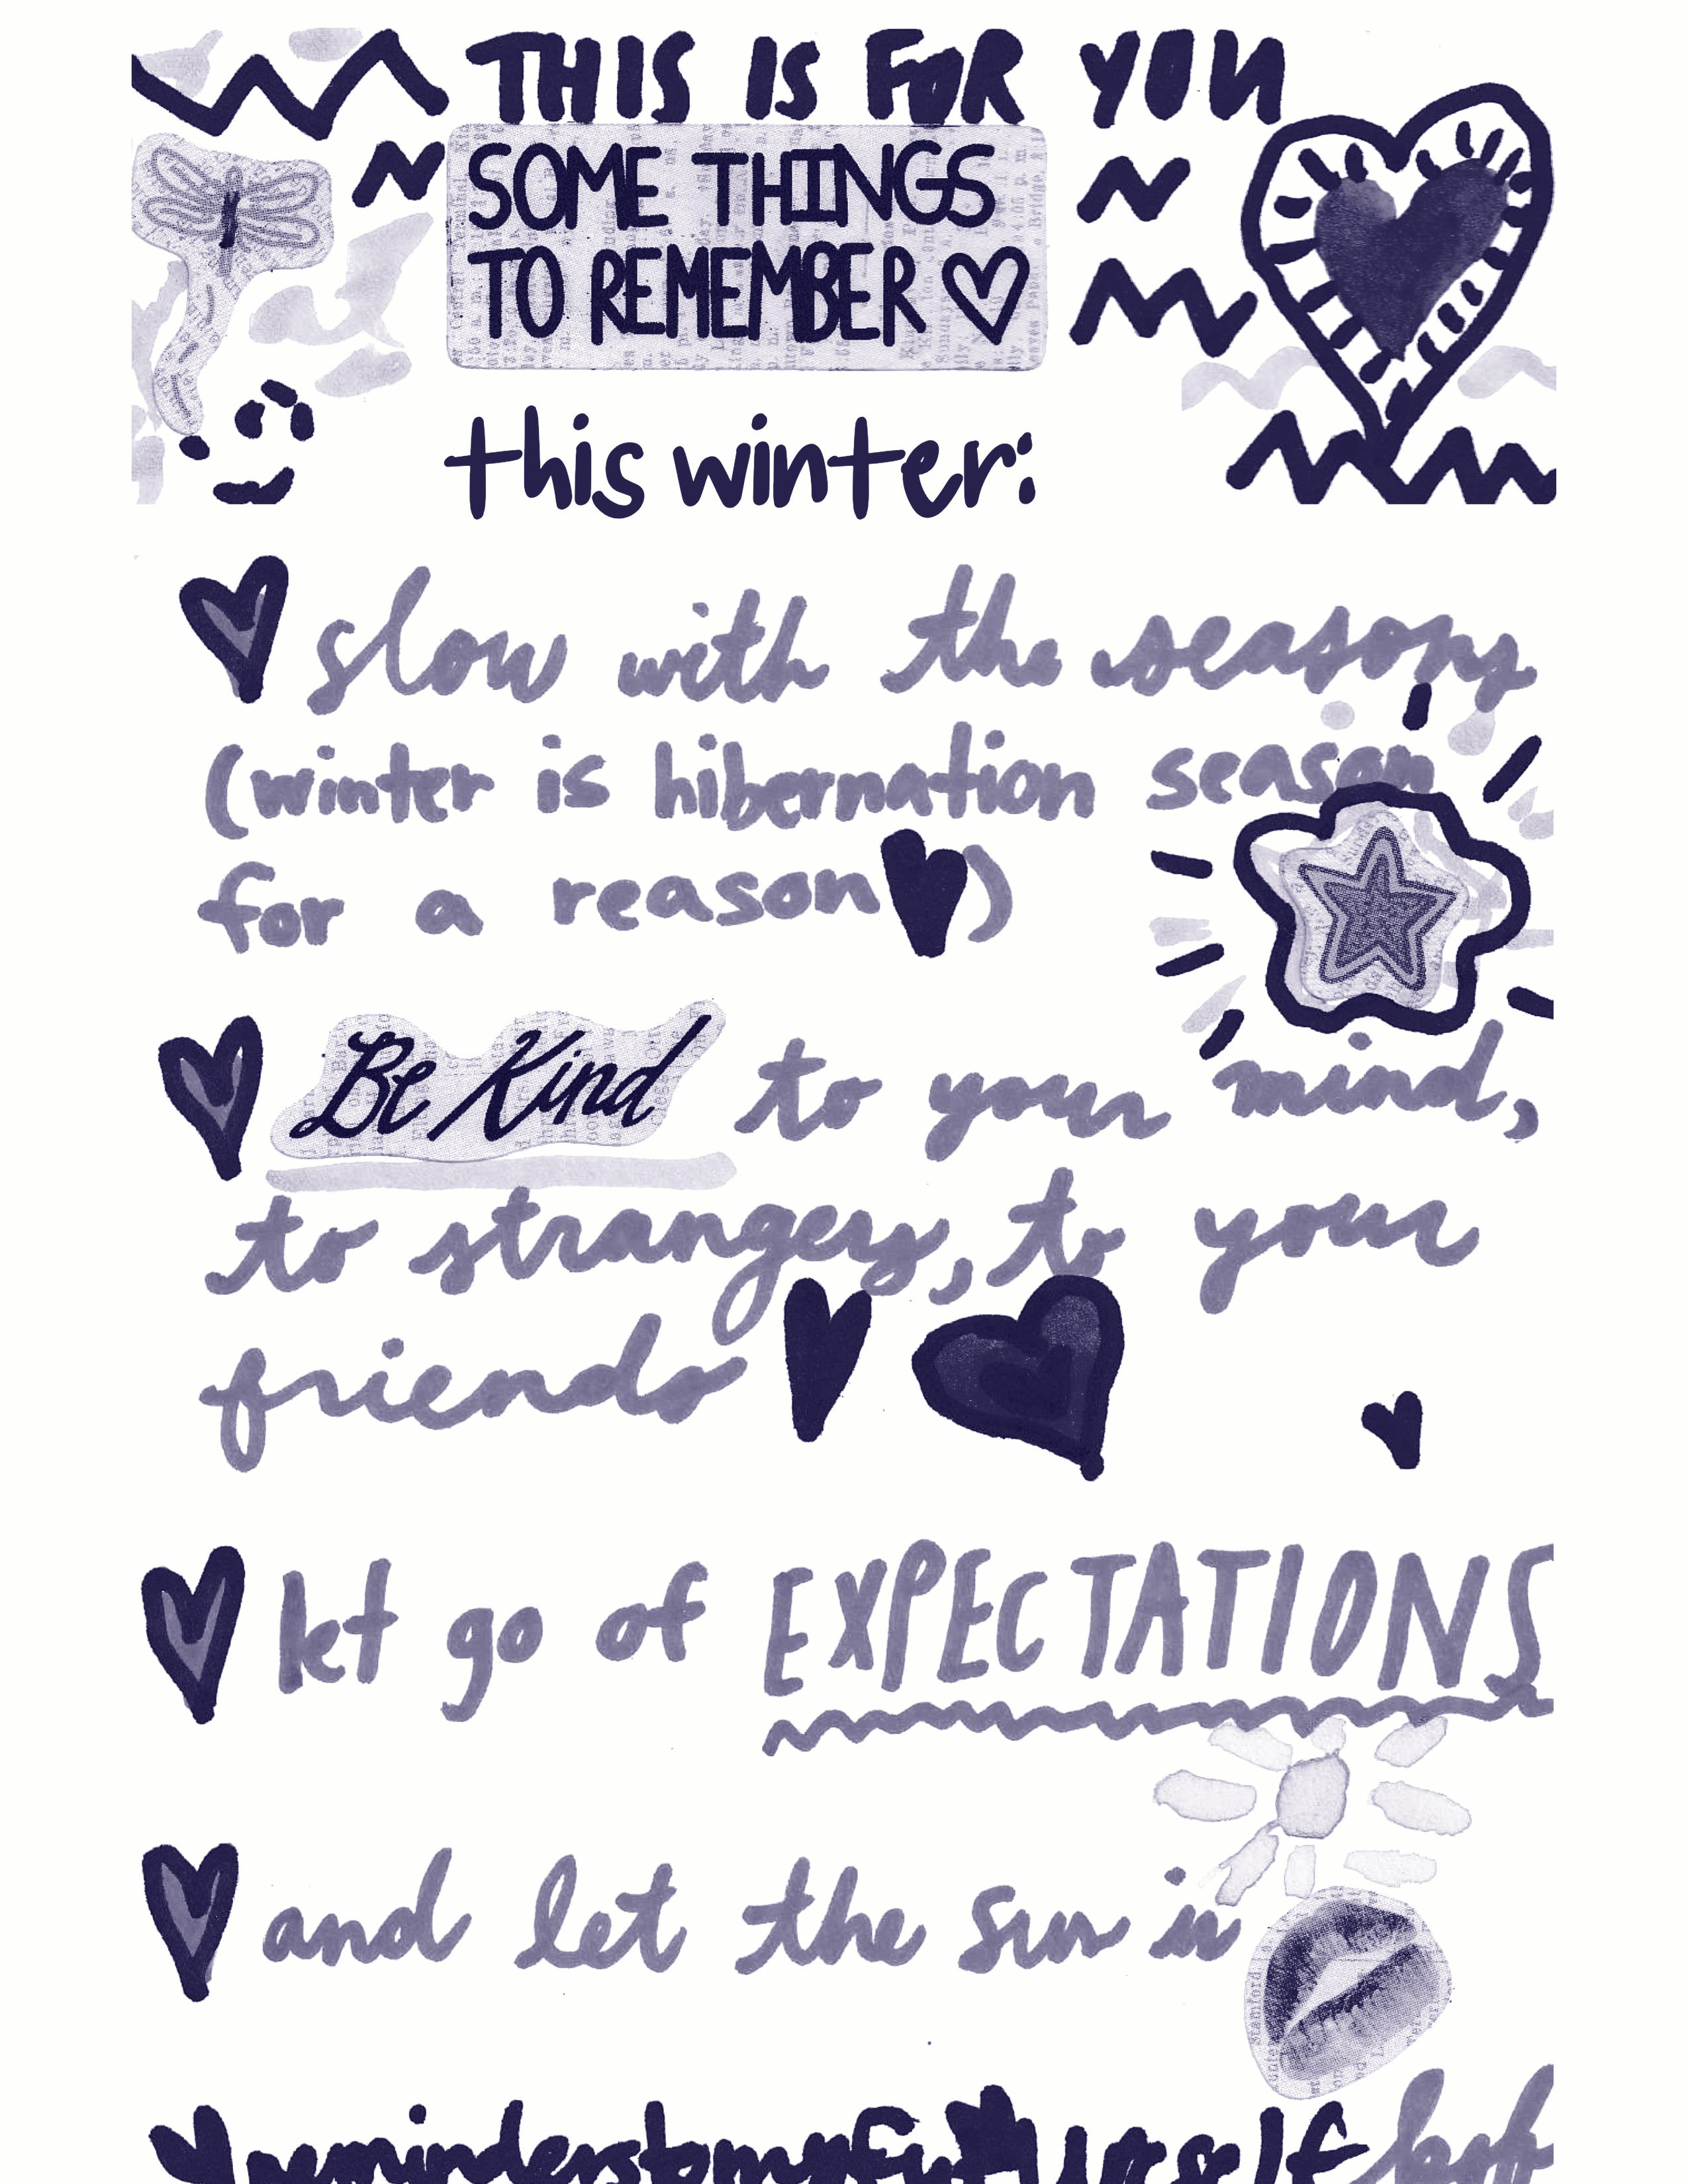 THIS IS FOR YOU
SOME THINGS
TO REMEMBER
this winter:
slow with the seasons
(winter is hibernation season
for a reason)
Be Kind to your mind,
to strangers, to your
friends
let go of EXPECTATIONS
and let the sun in
reminders to my future self